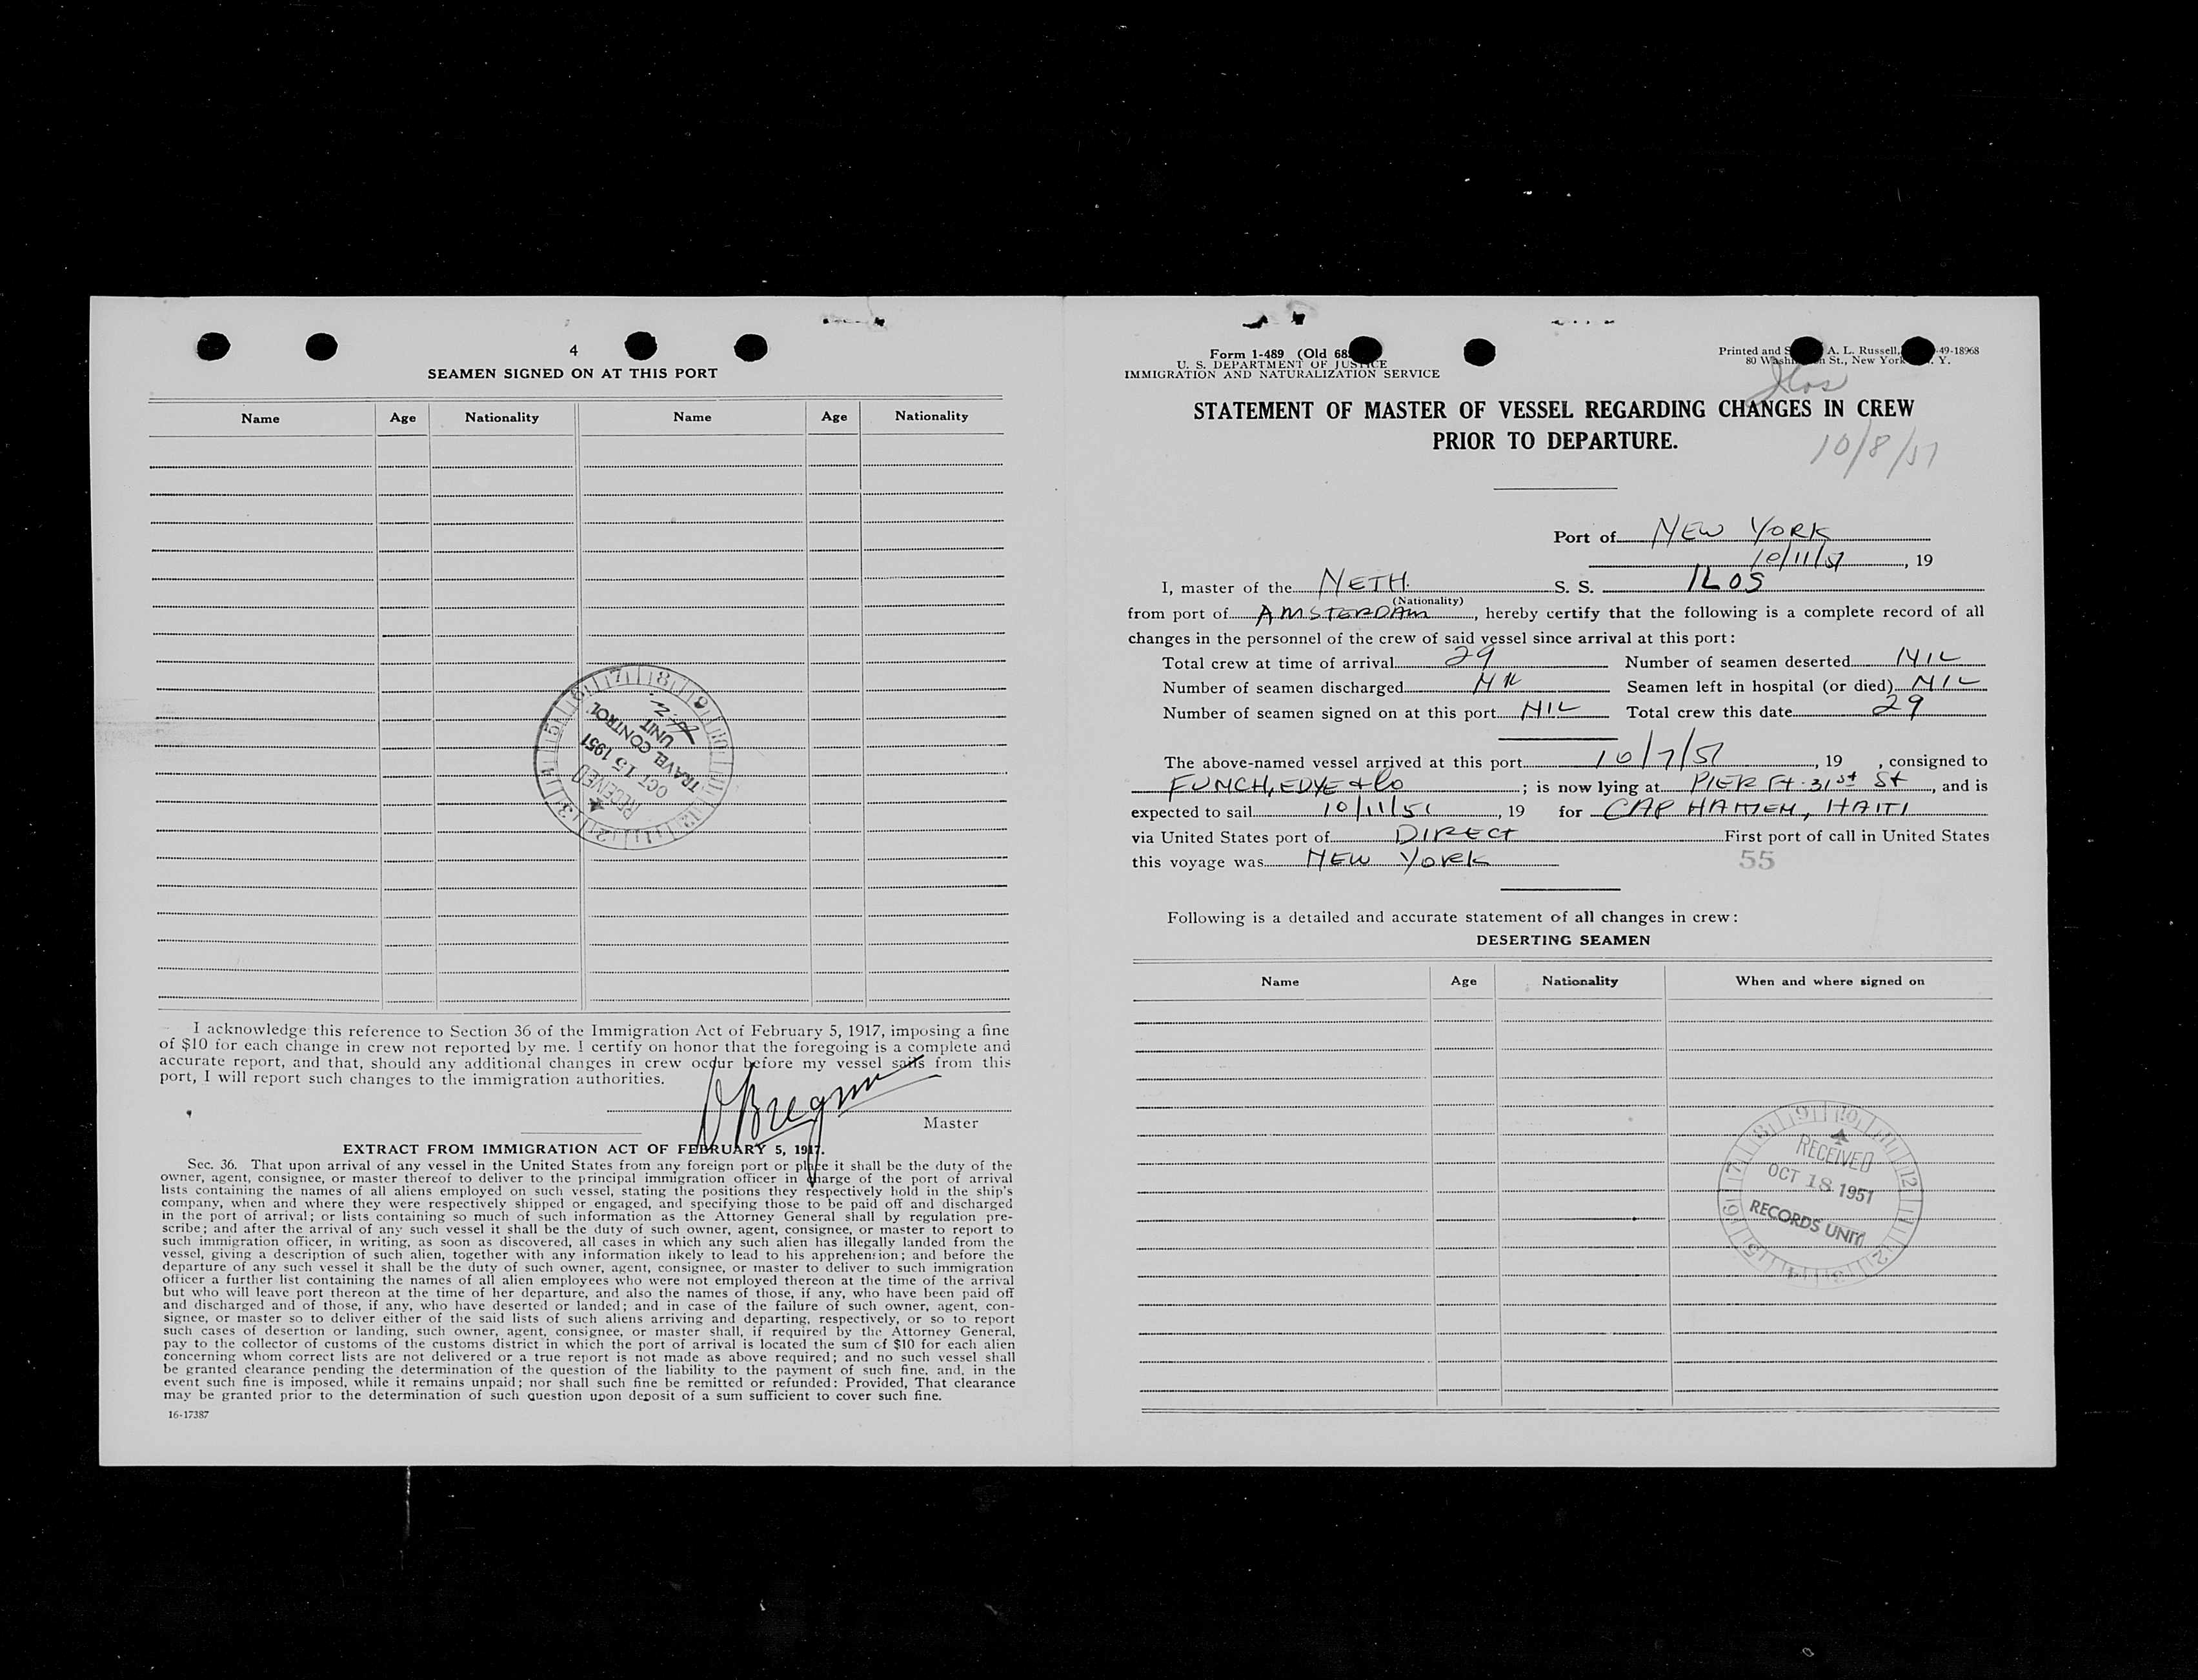 4
SEAMEN SIGNED ON AT THIS PORT
Name Age Nationality Name Age Nationality
RECEIVED
OCT 15 1951
TRAVEL CONTROL
UNIT
I acknowledge this reference to Section 36 of the Immigration Act of February 5, 1917, imposing a fine
of $10 for each change in crew not reported by me. I certify on honor that the foregoing is a complete and
accurate report, and that, should any additional changes in crew occur before my vessel sails from this
port, I will report such changes to the immigration authorities.
Master
EXTRACT FROM IMMIGRATION ACT OF FEBRUARY 5, 1917.
Sec. 36. That upon arrival of any vessel in the United States from any foreign port or place it shall be the duty of the
owner, agent, consignee, or master thereof to deliver to the principal immigration officer in charge of the port of arrival
lists containing the names of all aliens employed on such vessel, stating the positions they respectively hold in the ship's
company, when and where they were respectively shipped or engaged, and specifying those to be paid off and discharged
in the port of arrival; or lists containing so much of such information as the Attorney General shall by regulation pre-
scribe; and after the arrival of any such vessel it shall be the duty of such owner, agent, consignee, or master to report to
such immigration officer, in writing, as soon as discovered, all cases in which any such alien has illegally landed from the
vessel, giving a description of such alien, together with any information likely to lead to his apprehension; and before the
departure of any such vessel it shall be the duty of such owner, agent, consignee, or master to deliver to such immigration
officer a further list containing the names of all alien employees who were not employed thereon at the time of the arrival
but who will leave port thereon at the time of her departure, and also the names of those, if any, who have been paid off
and discharged and of those, if any, who have deserted or landed; and in case of the failure of such owner, agent, con-
signee, or master so to deliver either of the said lists of such aliens arriving and departing, respectively, or so to report
such cases of desertion or landing, such owner, agent, consignee, or master shall, if required by the Attorney General,
pay to the collector of customs of the customs district in which the port of arrival is located the sum of $10 for each alien
concerning whom correct lists are not delivered or a true report is not made as above required; and no such vessel shall
be granted clearance pending the determination of the question of the liability to the payment of such fine, and, in the
event such fine is imposed, while it remains unpaid; nor shall such fine be remitted or refunded: Provided, That clearance
may be granted prior to the determination of such question upon deposit of a sum sufficient to cover such fine.
16-17387
Form 1-489 (Old 68
U. S. DEPARTMENT OF JUSTICE
IMMIGRATION AND NATURALIZATION SERVICE
Printed and S A. L. Russell, -49-18968
80 Washington St., New York, N. Y.
Ilos
STATEMENT OF MASTER OF VESSEL REGARDING CHANGES IN CREW
PRIOR TO DEPARTURE.
10/8/51
Port of NEW YORK
10/11/51, 19
I, master of the NETH. S. S. ILOS
(Nationality)
from port of AMSTERDAM, hereby certify that the following is a complete record of all
changes in the personnel of the crew of said vessel since arrival at this port:
Total crew at time of arrival 29 Number of seamen deserted NIL
Number of seamen discharged NIL Seamen left in hospital (or died) NIL
Number of seamen signed on at this port NIL Total crew this date 29
The above-named vessel arrived at this port 10/7/51, 19 , consigned to
FUNCH, EDYE & Co; is now lying at PIER Ft. 31st St, and is
expected to sail 10/11/51, 19 for CAP HAITIEN, HAITI
via United States port of DIRECT First port of call in United States
this voyage was NEW YORK
55
Following is a detailed and accurate statement of all changes in crew:
DESERTING SEAMEN
Name Age Nationality When and where signed on
RECEIVED
OCT 18 1951
RECORDS UNIT